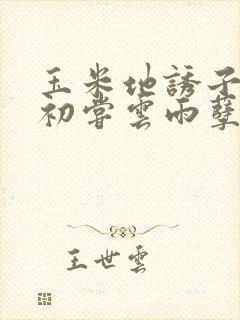 玉米地誘子
初嘗雲雨孽
王世雲